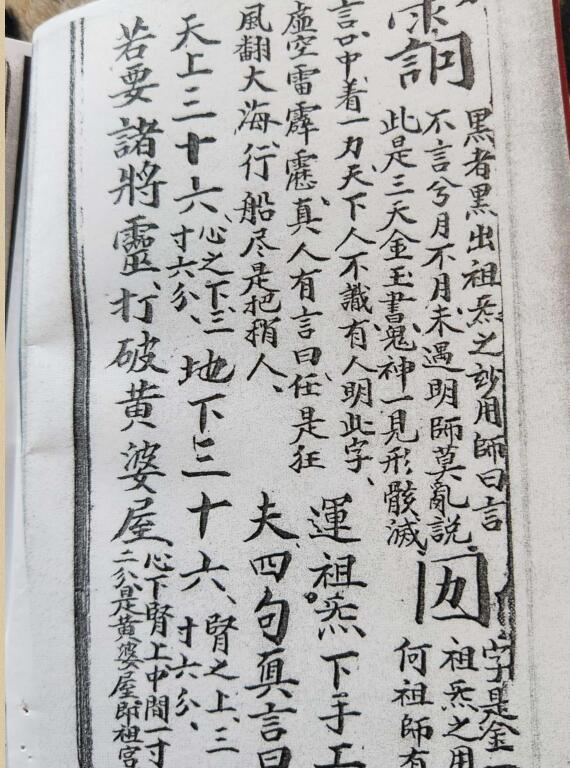 詗
黑者黑出祖炁之妙用師曰言
不言兮月不月未遇明師莫亂說
此是三天金玉書鬼神一見形骸滅
字是金一
祖炁之用
何祖師有
言口中着一力天下人不識有人明此字、
虛空雷霹靂真人有言曰任是狂
風翻大海行船尽是把稍人、
運祖炁下手工
夫四句真言曰
天上三十六、心之下三
寸六分、
地下三十六、腎之上、三
寸六分、
若要諸將靈、打破黃婆屋、心下腎上中間一寸
二分是黃婆屋即祖宮